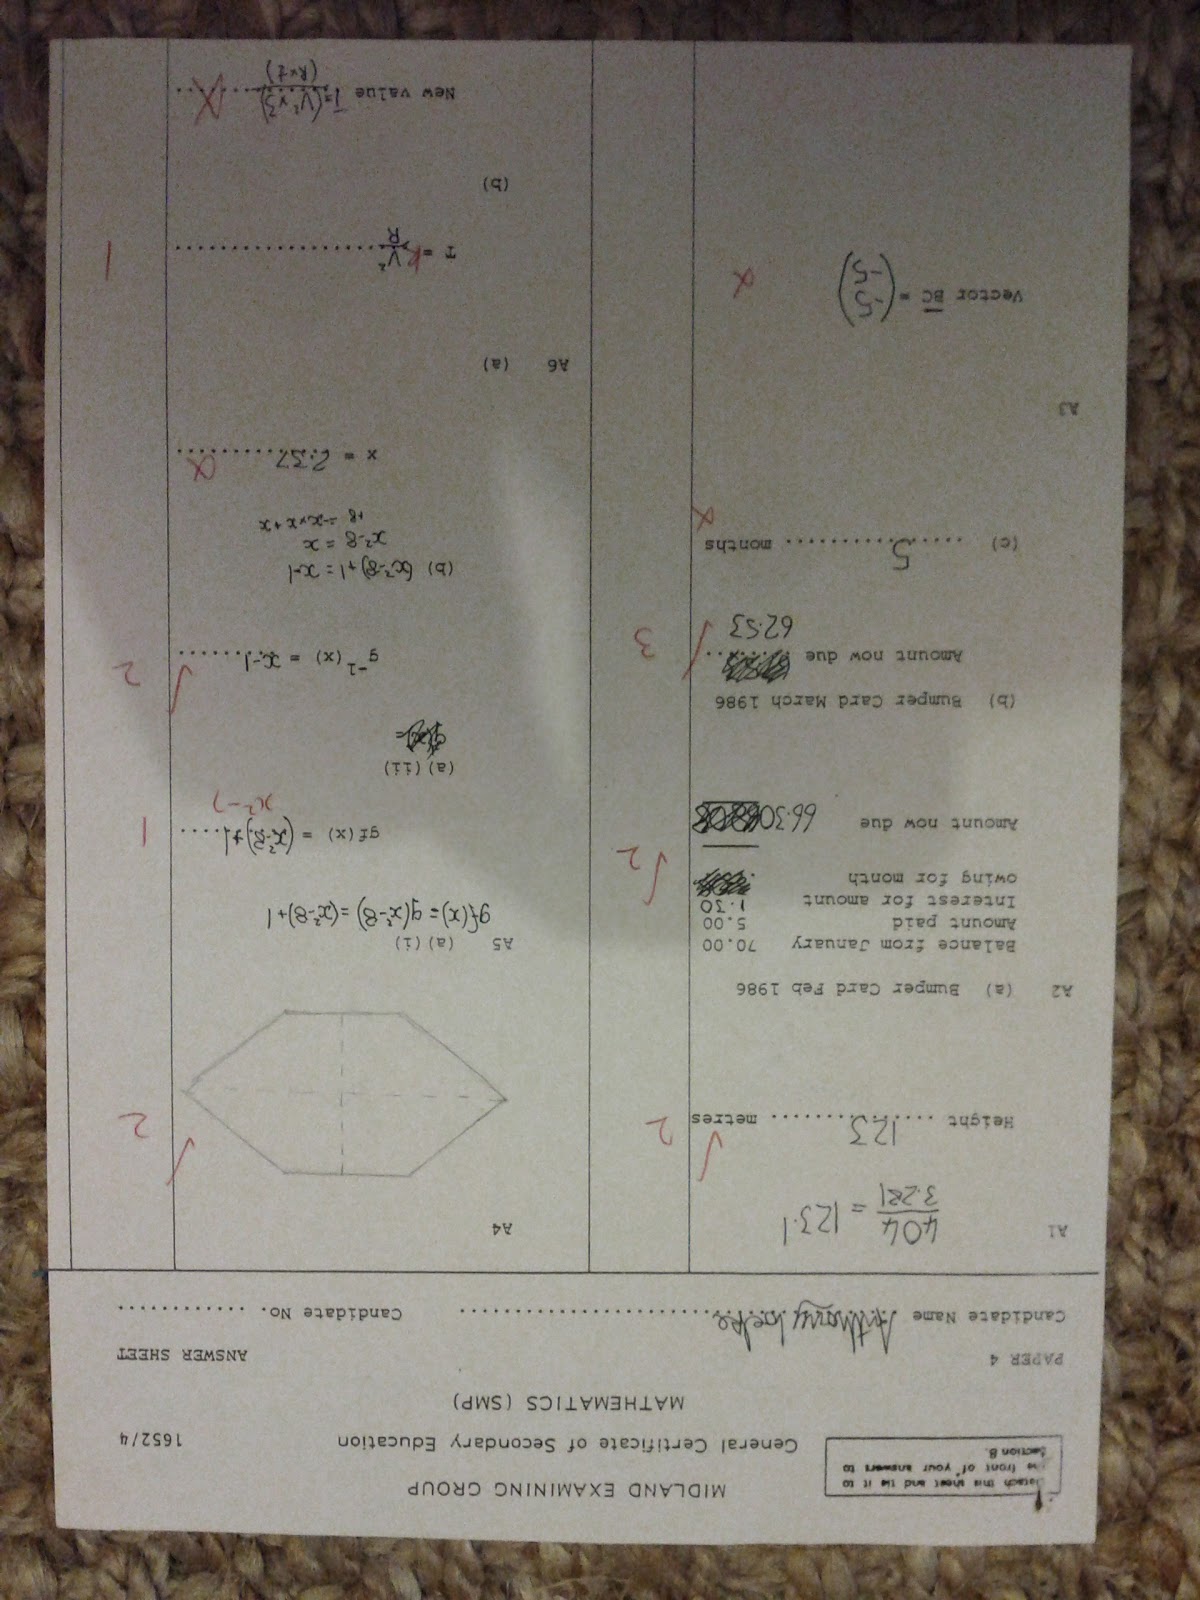 Detach this sheet and tie it to
the front of your answers to
Section B.
MIDLAND EXAMINING GROUP
General Certificate of Secondary Education
1652/4
MATHEMATICS (SMP)
PAPER 4
ANSWER SHEET
Candidate Name Anthony
Candidate No. .............
A1
404/3.281 = 123.1
Height ....123.... metres
2
A2 (a) Bumper Card Feb 1986
Balance from January 70.00
Amount paid 5.00
Interest for amount 1.30
owing for month
2
Amount now due 66.30
(b) Bumper Card March 1986
Amount now due
62.53
3
(c) ....5.... months
A3
Vector BC = (-5 -5)
A4
2
A5 (a)(i)
gf(x) = g(x²-8) = (x²-8)+1
gf(x) = (x²-8)+1
1
x²-7
(a)(ii)
g⁻¹(x) = x-1
2
(b) (x²-8)+1 = x-1
x²-8 = x
+8 = -x × x + x
x = 2.37
A6 (a)
T = k V²/R
1
(b)
New value T = (V² × 3)/(R × 2)